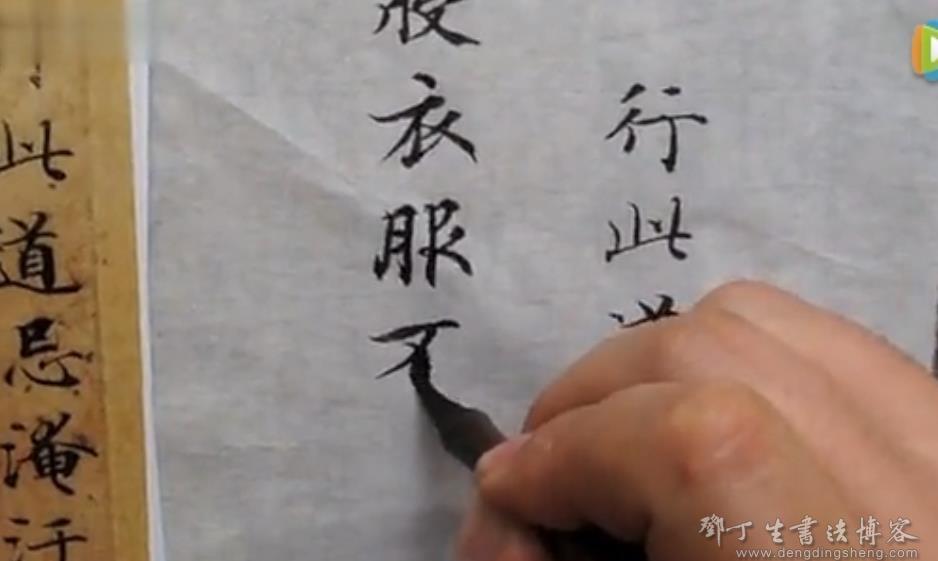 行此
衣服不
此道忌淹
鄧丁生書法博客
www.dengdingsheng.com